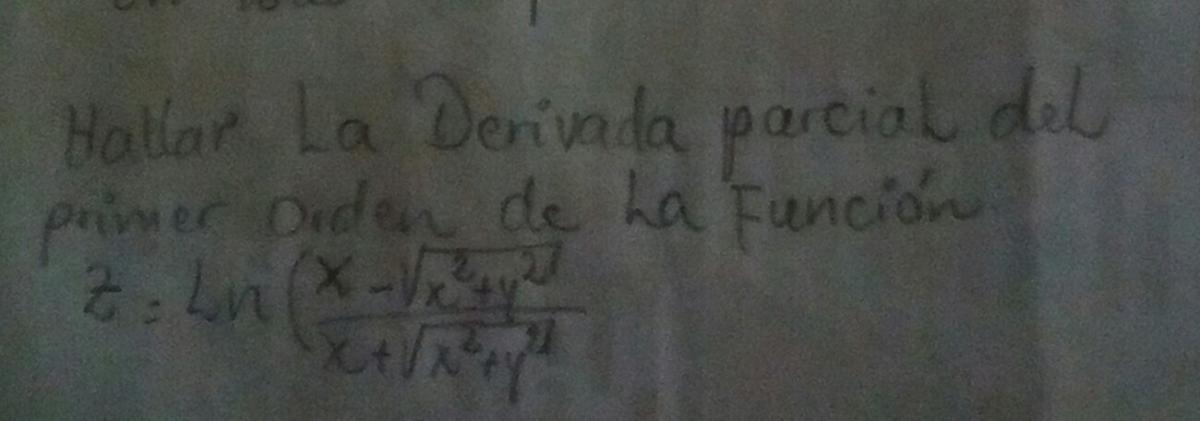 Hallar La Derivada parcial del
primer Orden de La Función
z = Ln (x - √x²+y² / x + √x²+y²